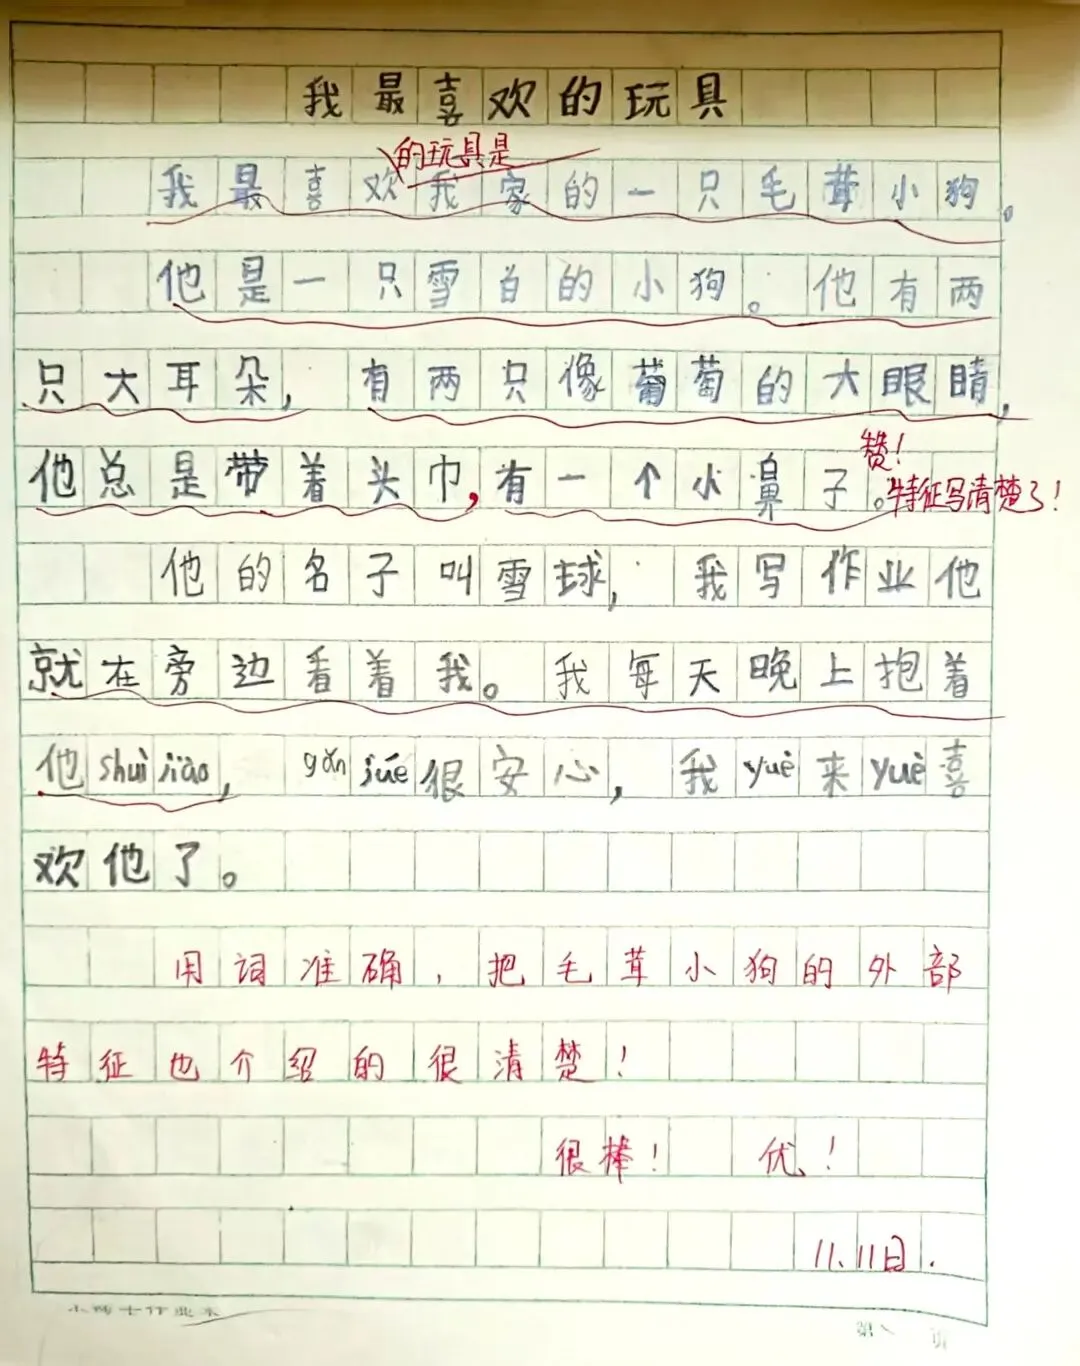 我最喜欢的玩具
的玩具是
我最喜欢我家的一只毛茸小狗。
他是一只雪白的小狗。他有两
只大耳朵，有两只像葡萄的大眼睛，
他总是带着头巾，有一个小鼻子。
赞！
特征写清楚了！
他的名子叫雪球，我写作业他
就在旁边看着我。我每天晚上抱着
他shuì jiào，gǎn júe很安心，我yuè来yuè喜
欢他了。
用词准确，把毛茸小狗的外部
特征也介绍的很清楚！
很棒！优！
11.11日.